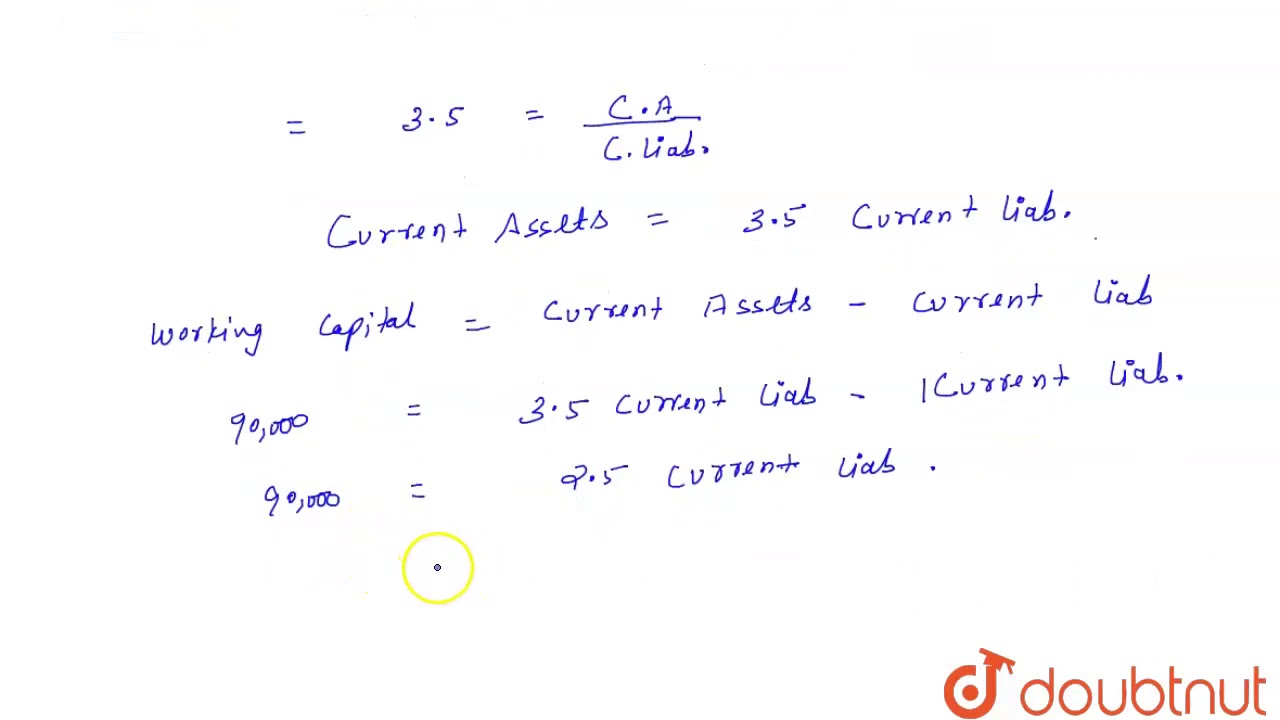 = 3.5 = C.A
C. Liab.
Current Assets = 3.5 Current Liab.
Working Capital = Current Assets - Current Liab
90,000 = 3.5 Current Liab - 1 Current Liab.
90,000 = 2.5 Current Liab.
doubtnut